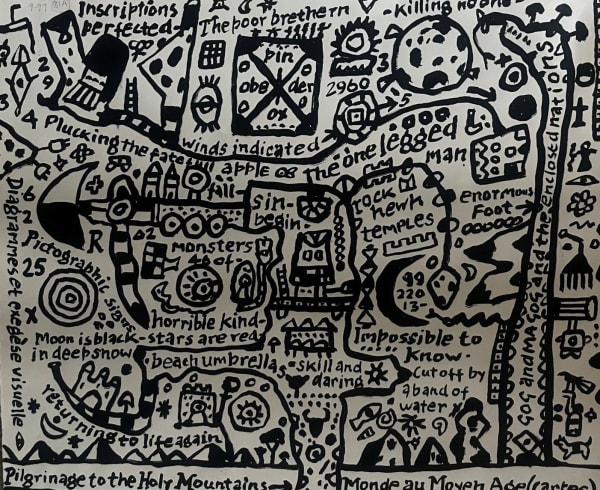 Inscriptions
perfected
The poor brethern
-killing no one-
pin
obe der
ox
2960
3
5
2
2
9
3
4
Plucking the fateful
winds indicated
apple of
fall
the one legged
man
sin-
begin-
rock
hewn
temples
enormous
foot→
6
2
R
monsters
46 of-
Pictographic signs
25
Diagrammes et exégèse visuelle
99
220
13-
horrible kind-
Moon is black-stars are red
in deep snow
beach umbrellas-skill and
daring
Impossible to
know.
Cut off by
a band of
water
returning to life again
GOG and MAGOG and the enclosed nations
Pilgrimage to the Holy Mountains→
Monde au Moyen Age (cartes)